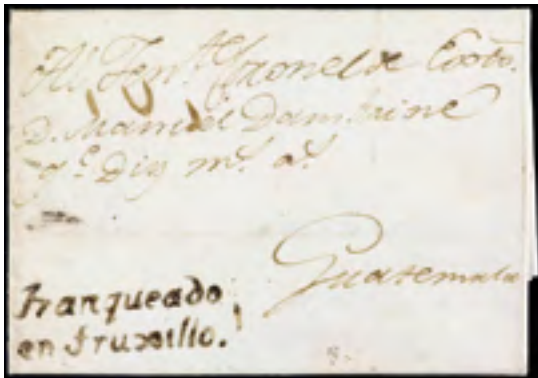 Al Ten.te Coronel de Exto.
D. Manuel Dambrine
g.e Dios m.s a.s
Guatemala
Franqueado
en Truxillo.